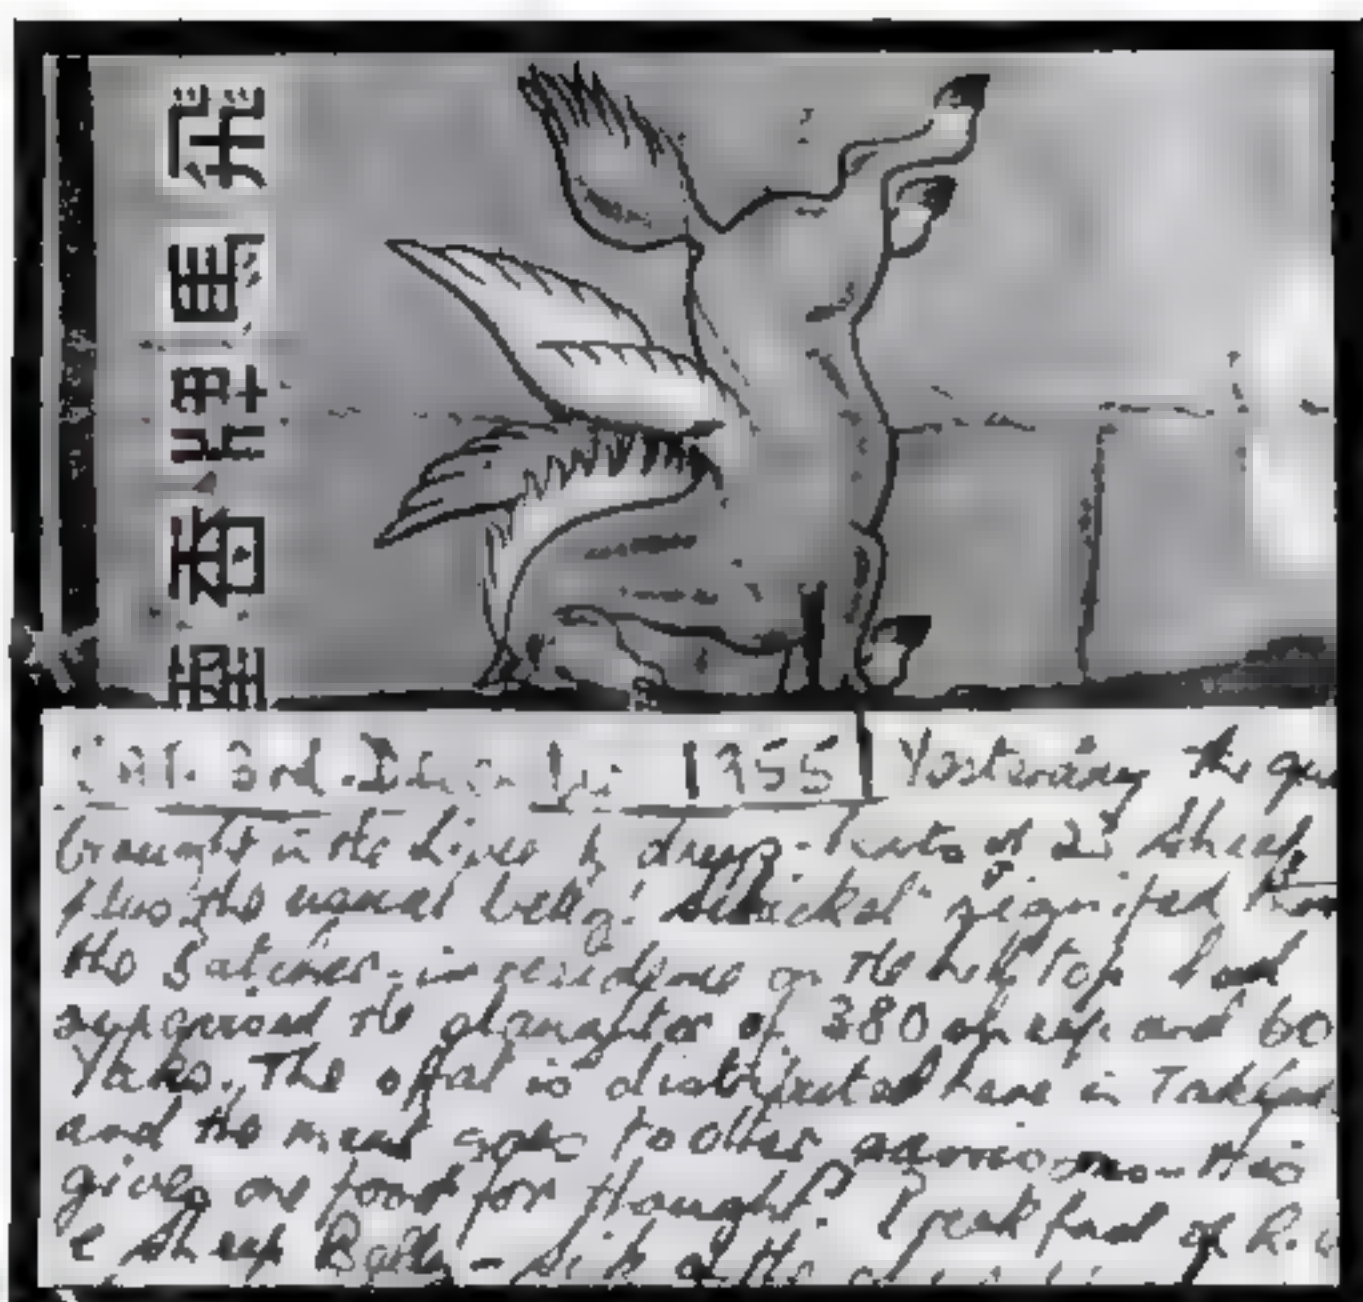 飛馬牌香
Sat. 3rd December 1955 Yesterday the
brought in the livers & hearts of 23 sheep
plus the usual belly! signified
the in residence on the hill top had
supervised the slaughter of 380 sheep and 60
Yaks. The offal is distributed here in
and the meat goes to other garrisons - this
gives one food for thought! Breakfast of
sheep Belly - sick of the